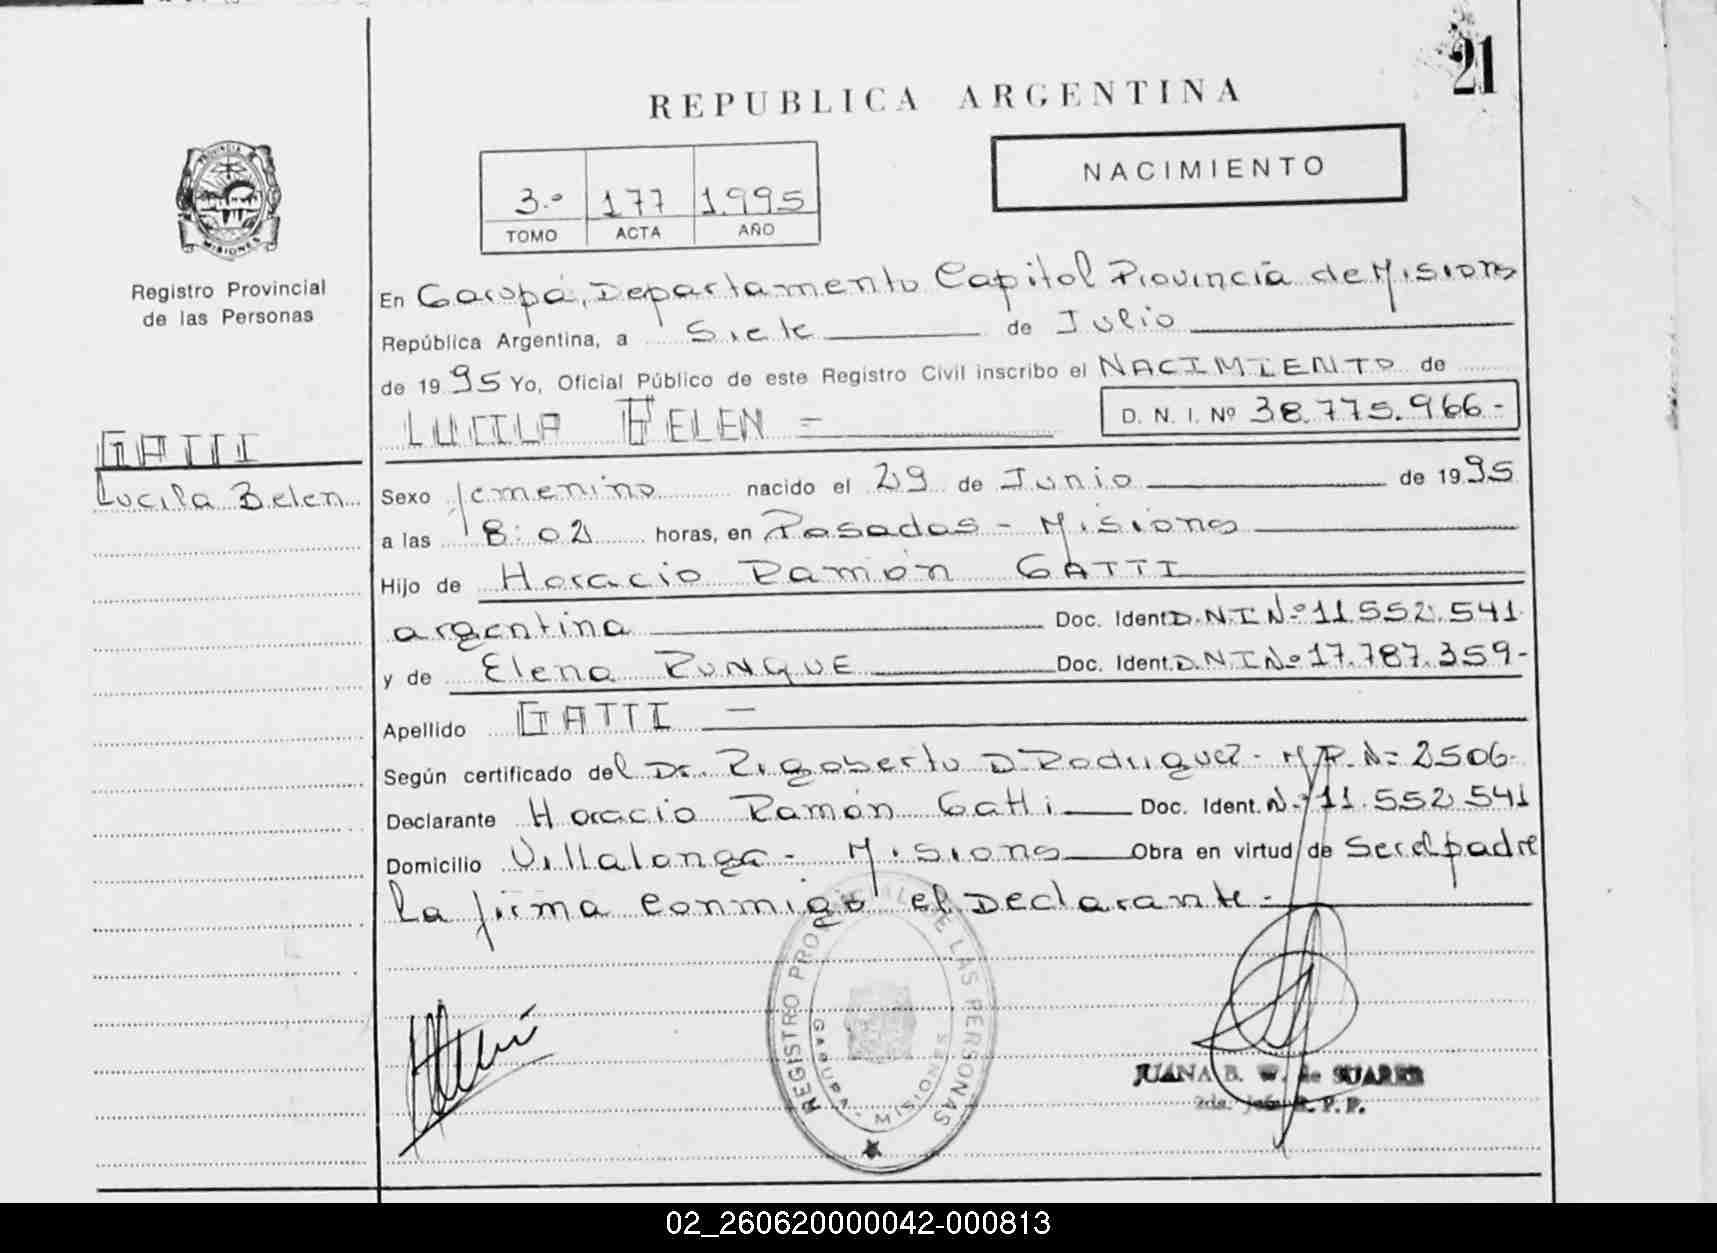 21
REPUBLICA ARGENTINA
PROVINCIA DE
MISIONES
Registro Provincial
de las Personas
3.º 177 1.995
TOMO ACTA AÑO
NACIMIENTO
En Garupá, Departamento Capitol Provincia de Misiones
República Argentina, a Siete de Julio
de 1995 Yo, Oficial Público de este Registro Civil inscribo el NACIMIENTO de
LUCILA BELEN =
D. N. I. Nº 38.775.966-
GATTI
Lucila Belen
Sexo femenino nacido el 29 de Junio de 1995
a las 8:02 horas, en Posadas - Misiones
Hijo de Horacio Ramón GATTI
argentina Doc. Ident. D.N.I Nº 11.552.541
y de Elena RUNQUE Doc. Ident. D.N.I Nº 17.787.359-
Apellido GATTI -
Según certificado del Dr. Rigoberto D Rodriguez - M.P. Nº 2506-
Declarante Horacio Ramón Gatti Doc. Ident. Nº 11.552.541
Domicilio Villalonga - Misiones Obra en virtud de Ser el padre
La firma conmigo el Declarante -
REGISTRO PROVINCIAL DE LAS PERSONAS
GARUPA - MISIONES
JUANA B. W. de SUAREZ
2da. Jefe R. P. P.
02_260620000042-000813